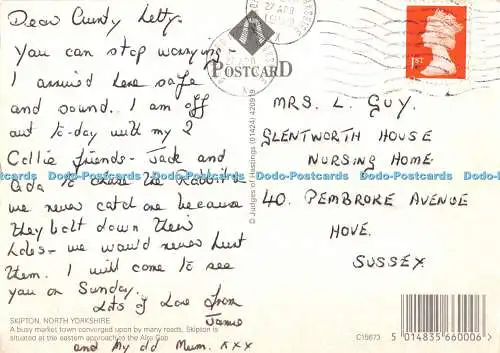 Dear Aunty Letty.
You can stop worrying -
I arrived here safe
and sound. I am off
out to-day with my 2
Collie friends - Jack and
to chase the Rabbits
we never catch one because
they bolt down their
holes - we would never hurt
them. I will come to see
you on Sunday.
Lots of Love from
Jamie
and My old Mum. xxx
SKIPTON, NORTH YORKSHIRE
A busy market town converged upon by many roads, Skipton is
situated at the eastern approach to the Aire Gap
POSTCARD
© Judges of Hastings (01424) 420919
27 APR
1ST
MRS. L. GUY.
GLENTWORTH HOUSE
NURSING HOME.
40. PEMBROKE AVENUE
HOVE.
SUSSEX.
C15673
5 014835 660006
Dodo-Postcards Dodo-Postcards Dodo-Postcards Dodo-Postcards Dodo-Postcards